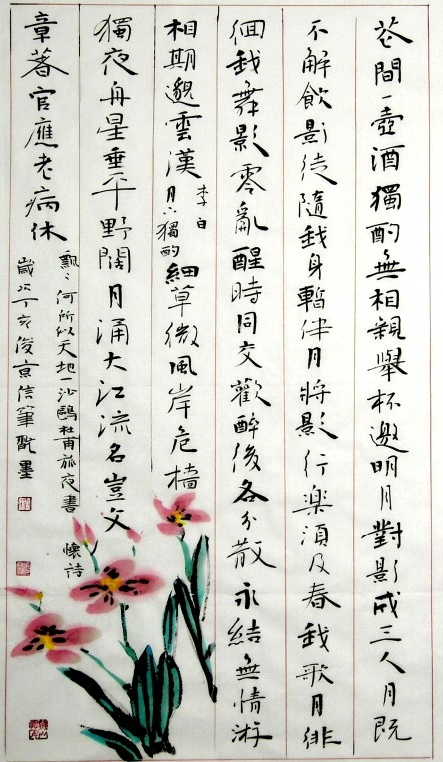 花間一壺酒獨酌無相親舉杯邀明月對影成三人月既
不解飲影徒隨我身暫伴月將影行樂須及春我歌月徘
徊我舞影零亂醒時同交歡醉後各分散永結無情游
相期邈雲漢李白月下獨酌細草微風岸危檣
獨夜舟星垂平野闊月涌大江流名豈文
章著官應老病休
飄飄何所似天地一沙鷗杜甫旅夜書懷詩
歲次丁亥俊京信筆戲墨